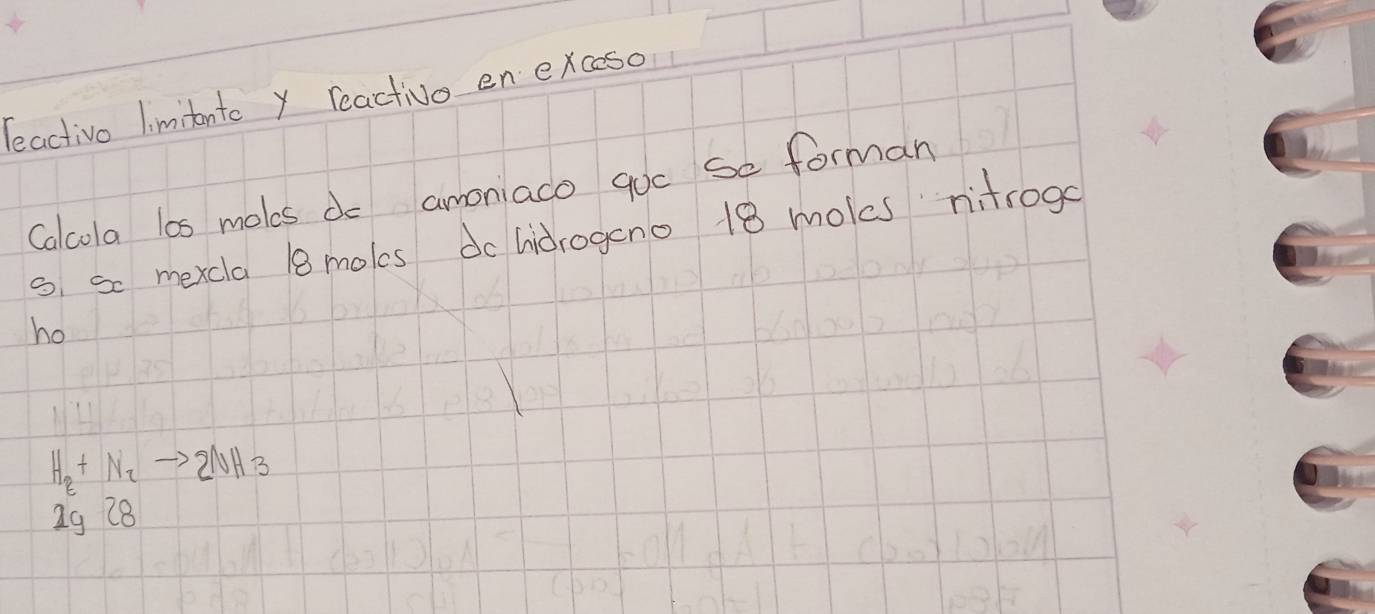 reactivo limitante y reactivo en exceso
Calcula los moles de amoniaco que se forman
si se mexcla 18 moles de hidrogeno 18 moles nitroge
no
H2 + N2 → 2NH3
2g 28